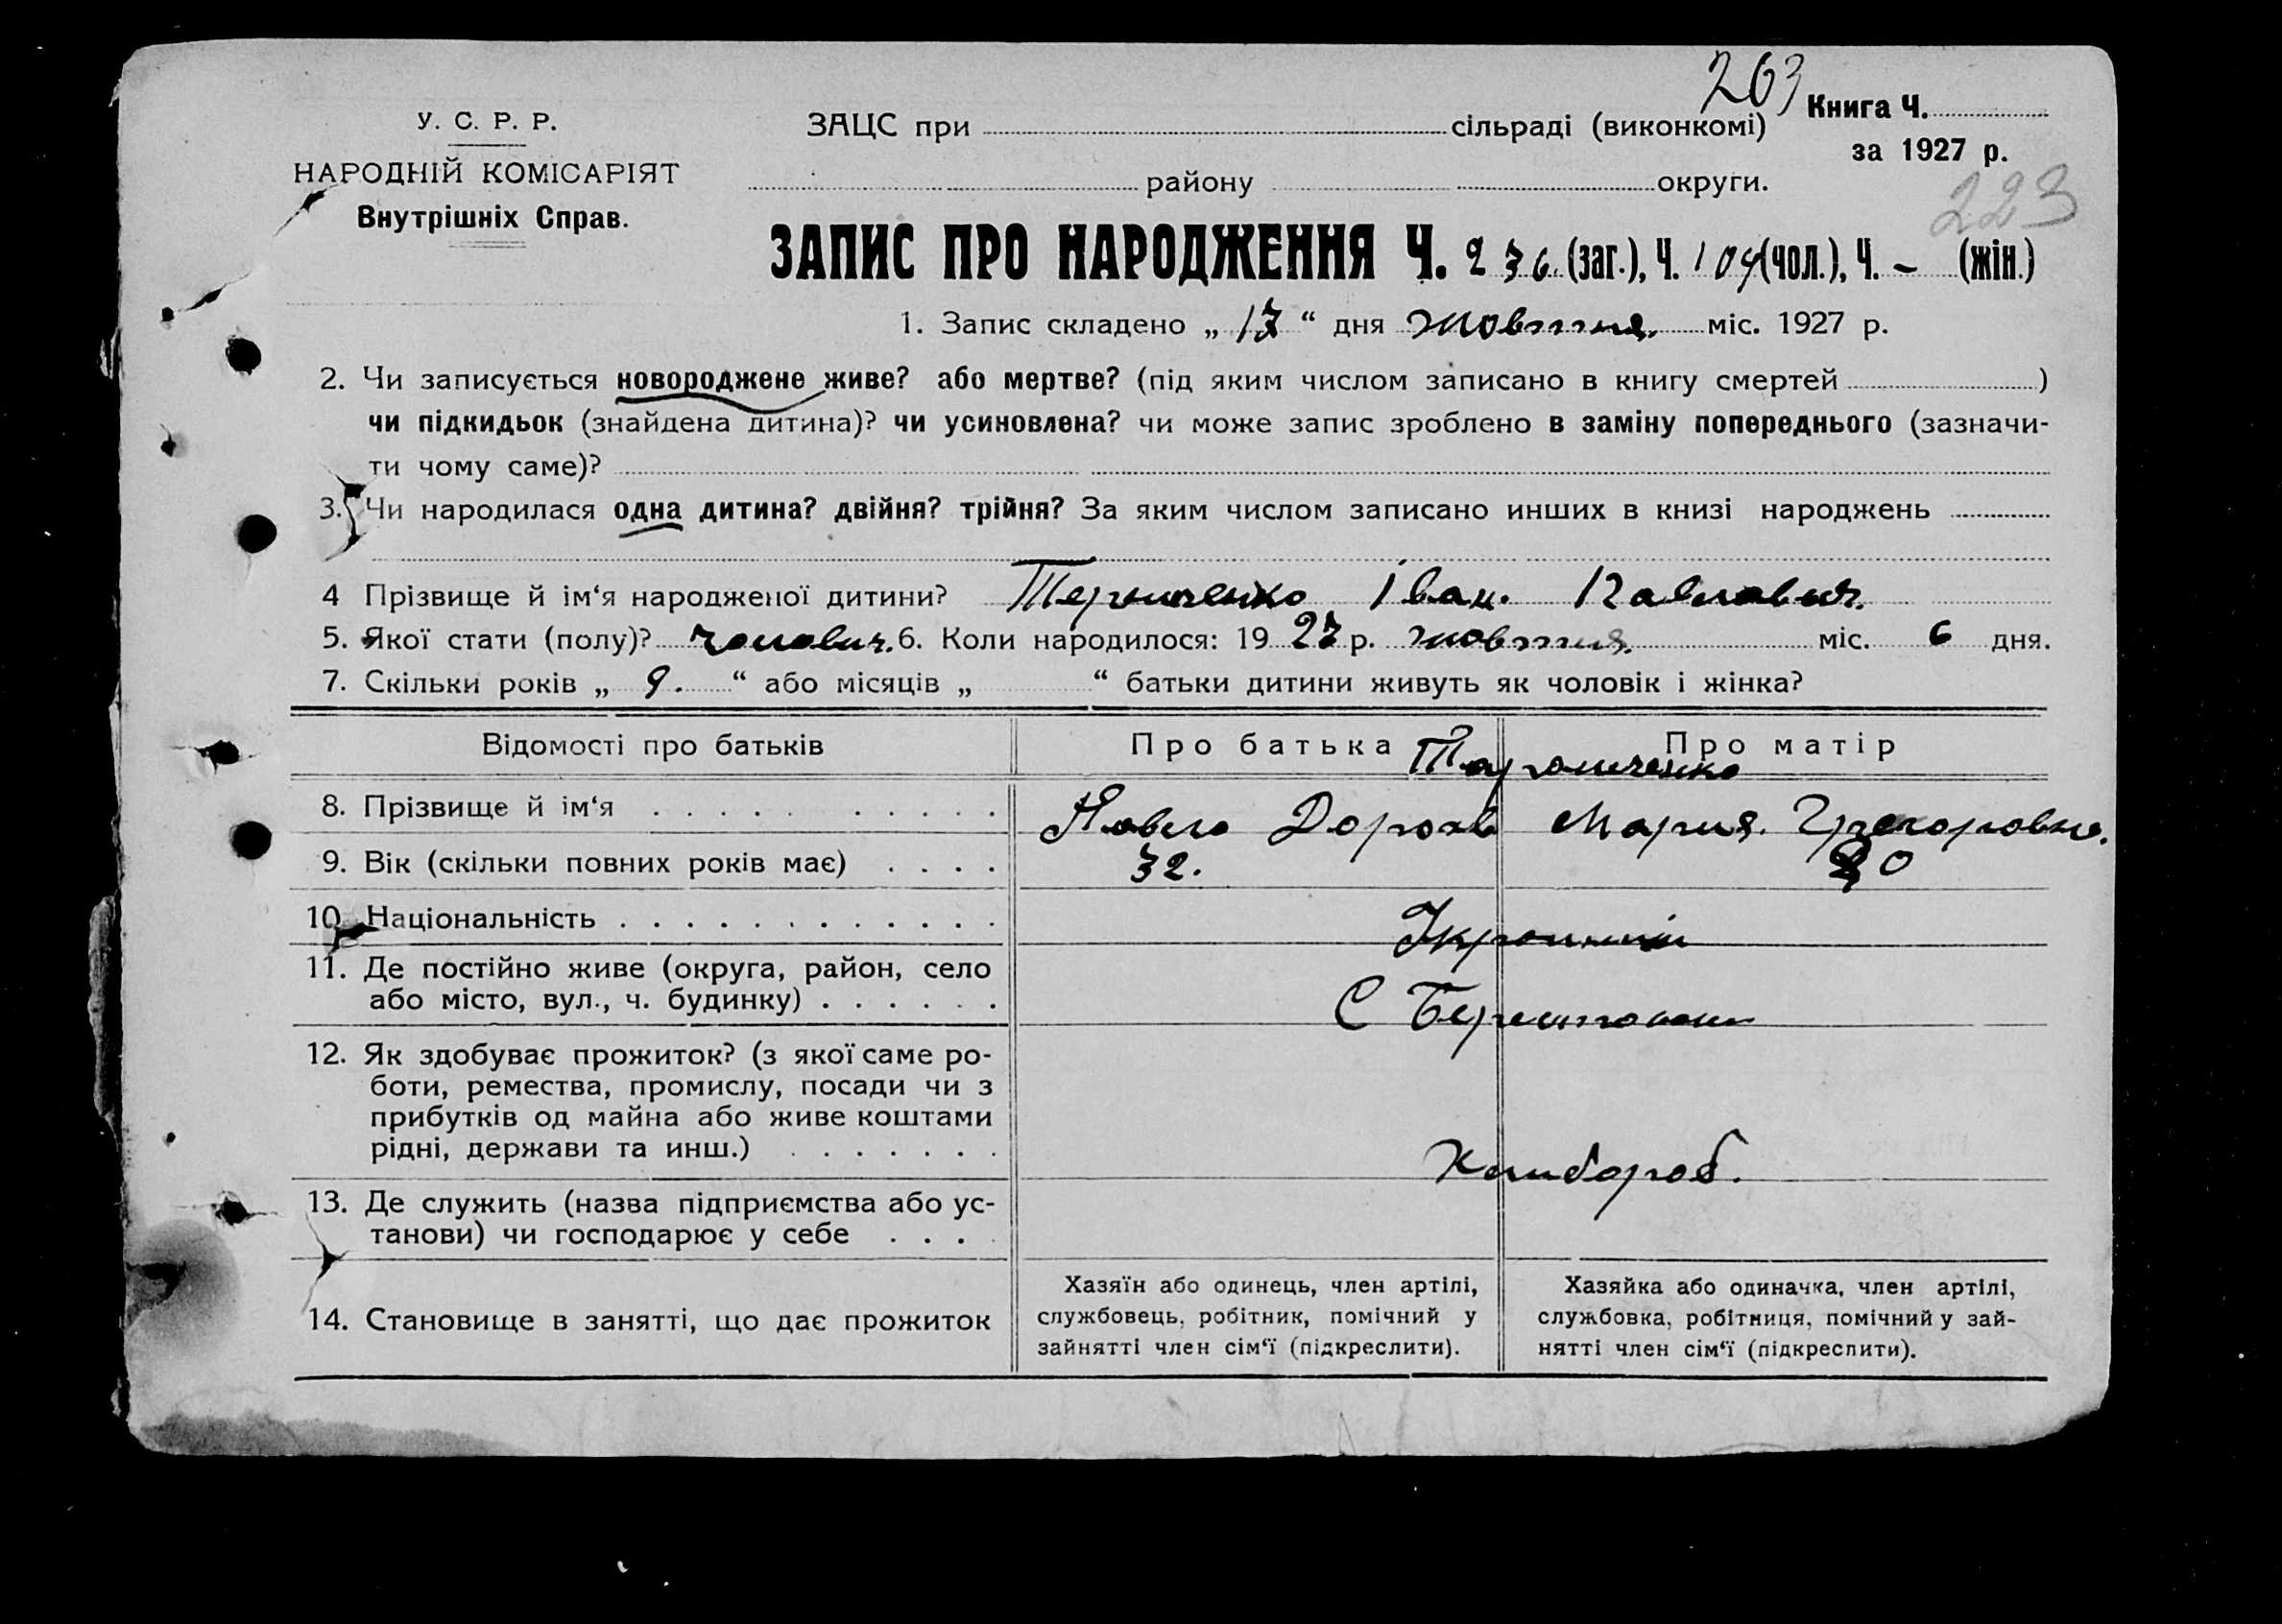 263
У. С. Р. Р.
НАРОДНІЙ КОМІСАРІЯТ
Внутрішніх Справ.
ЗАЦС при сільраді (виконкомі)
Книга Ч.
за 1927 р.
району округи.
223
ЗАПИС ПРО НАРОДЖЕННЯ Ч. 236 (заг.), Ч. 104 (чол.), Ч. – (жін.)
1. Запис складено „ 17 “ дня жовтня міс. 1927 р.
2. Чи записується новороджене живе? або мертве? (під яким числом записано в книгу смертей )
чи підкидьок (знайдена дитина)? чи усиновлена? чи може запис зроблено в заміну попереднього (зазначи-
ти чому саме)?
3. Чи народилася одна дитина? двійня? трійня? За яким числом записано инших в книзі народжень
4 Прізвище й ім‘я народженої дитини? Іван Павлович.
5. Якої стати (полу)? чоловіч. 6. Коли народилося: 1927 р. жовтня міс. 6 дня.
7. Скільки років „ 9. “ або місяців „ “ батьки дитини живуть як чоловік і жінка?
Відомості про батьків
Про батька
Про матір
8. Прізвище й ім‘я
Павло Мария. Григоровна.
9. Вік (скільки повних років має)
32.
10. Національність
11. Де постійно живе (округа, район, село
або місто, вул., ч. будинку)
С
12. Як здобуває прожиток? (з якої саме ро-
боти, ремества, промислу, посади чи з
прибутків од майна або живе коштами
рідні, держави та инш.)
Хлібороб.
13. Де служить (назва підприємства або ус-
танови) чи господарює у себе
14. Становище в занятті, що дає прожиток
Хазяїн або одинець, член артілі,
службовець, робітник, помічний у
зайнятті член сім‘ї (підкреслити).
Хазяйка або одиначка, член артілі,
службовка, робітниця, помічний у зай-
нятті член сім‘ї (підкреслити).